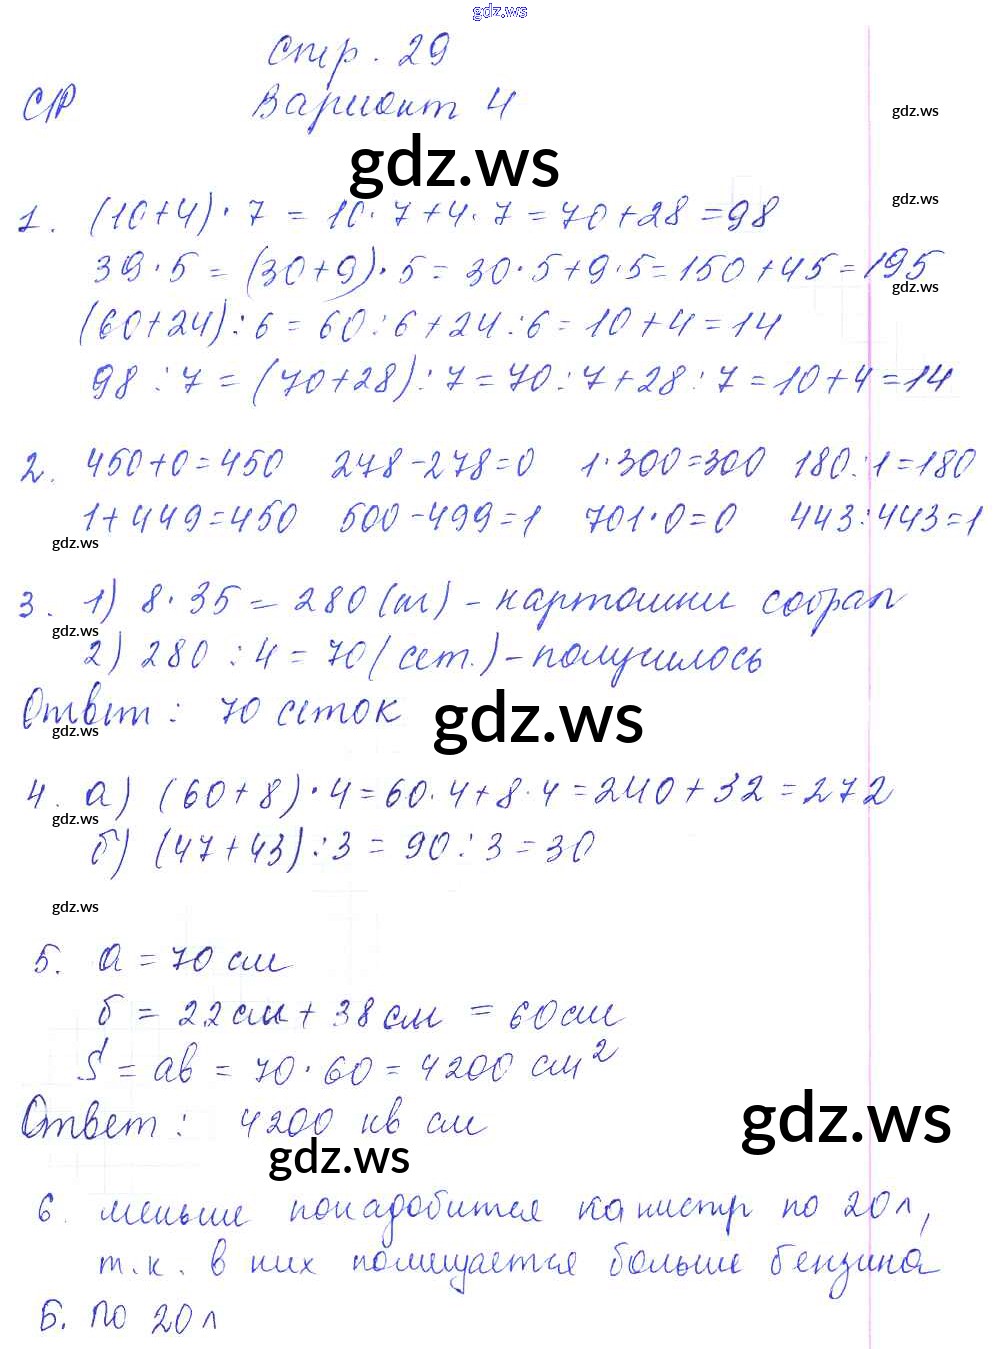 gdz.ws
стр. 29
С/Р Вариант 4
gdz.ws
gdz.ws
gdz.ws
1. (10+4)·7 = 10·7+4·7 = 70+28 = 98
39·5 = (30+9)·5 = 30·5+9·5 = 150+45 = 195
gdz.ws
(60+24):6 = 60:6+24:6 = 10+4 = 14
98:7 = (70+28):7 = 70:7+28:7 = 10+4 = 14
2. 450+0=450 278-278=0 1·300=300 180:1=180
1+449=450 500-499=1 701·0=0 443:443=1
gdz.ws
3. 1) 8·35 = 280 (м) - картошки собрал
gdz.ws
2) 280:4 = 70 (сет.) - получилось
Ответ: 70 сеток
gdz.ws
gdz.ws
4. а) (60+8)·4 = 60·4+8·4 = 240+32 = 272
gdz.ws
б) (47+43):3 = 90:3 = 30
gdz.ws
5. а = 70 см
б = 22 см + 38 см = 60 см
S = ав = 70·60 = 4200 см²
Ответ: 4200 кв см
gdz.ws
gdz.ws
6. меньше понадобится канистр по 20 л,
т.к. в них помещается больше бензина
Б. по 20 л